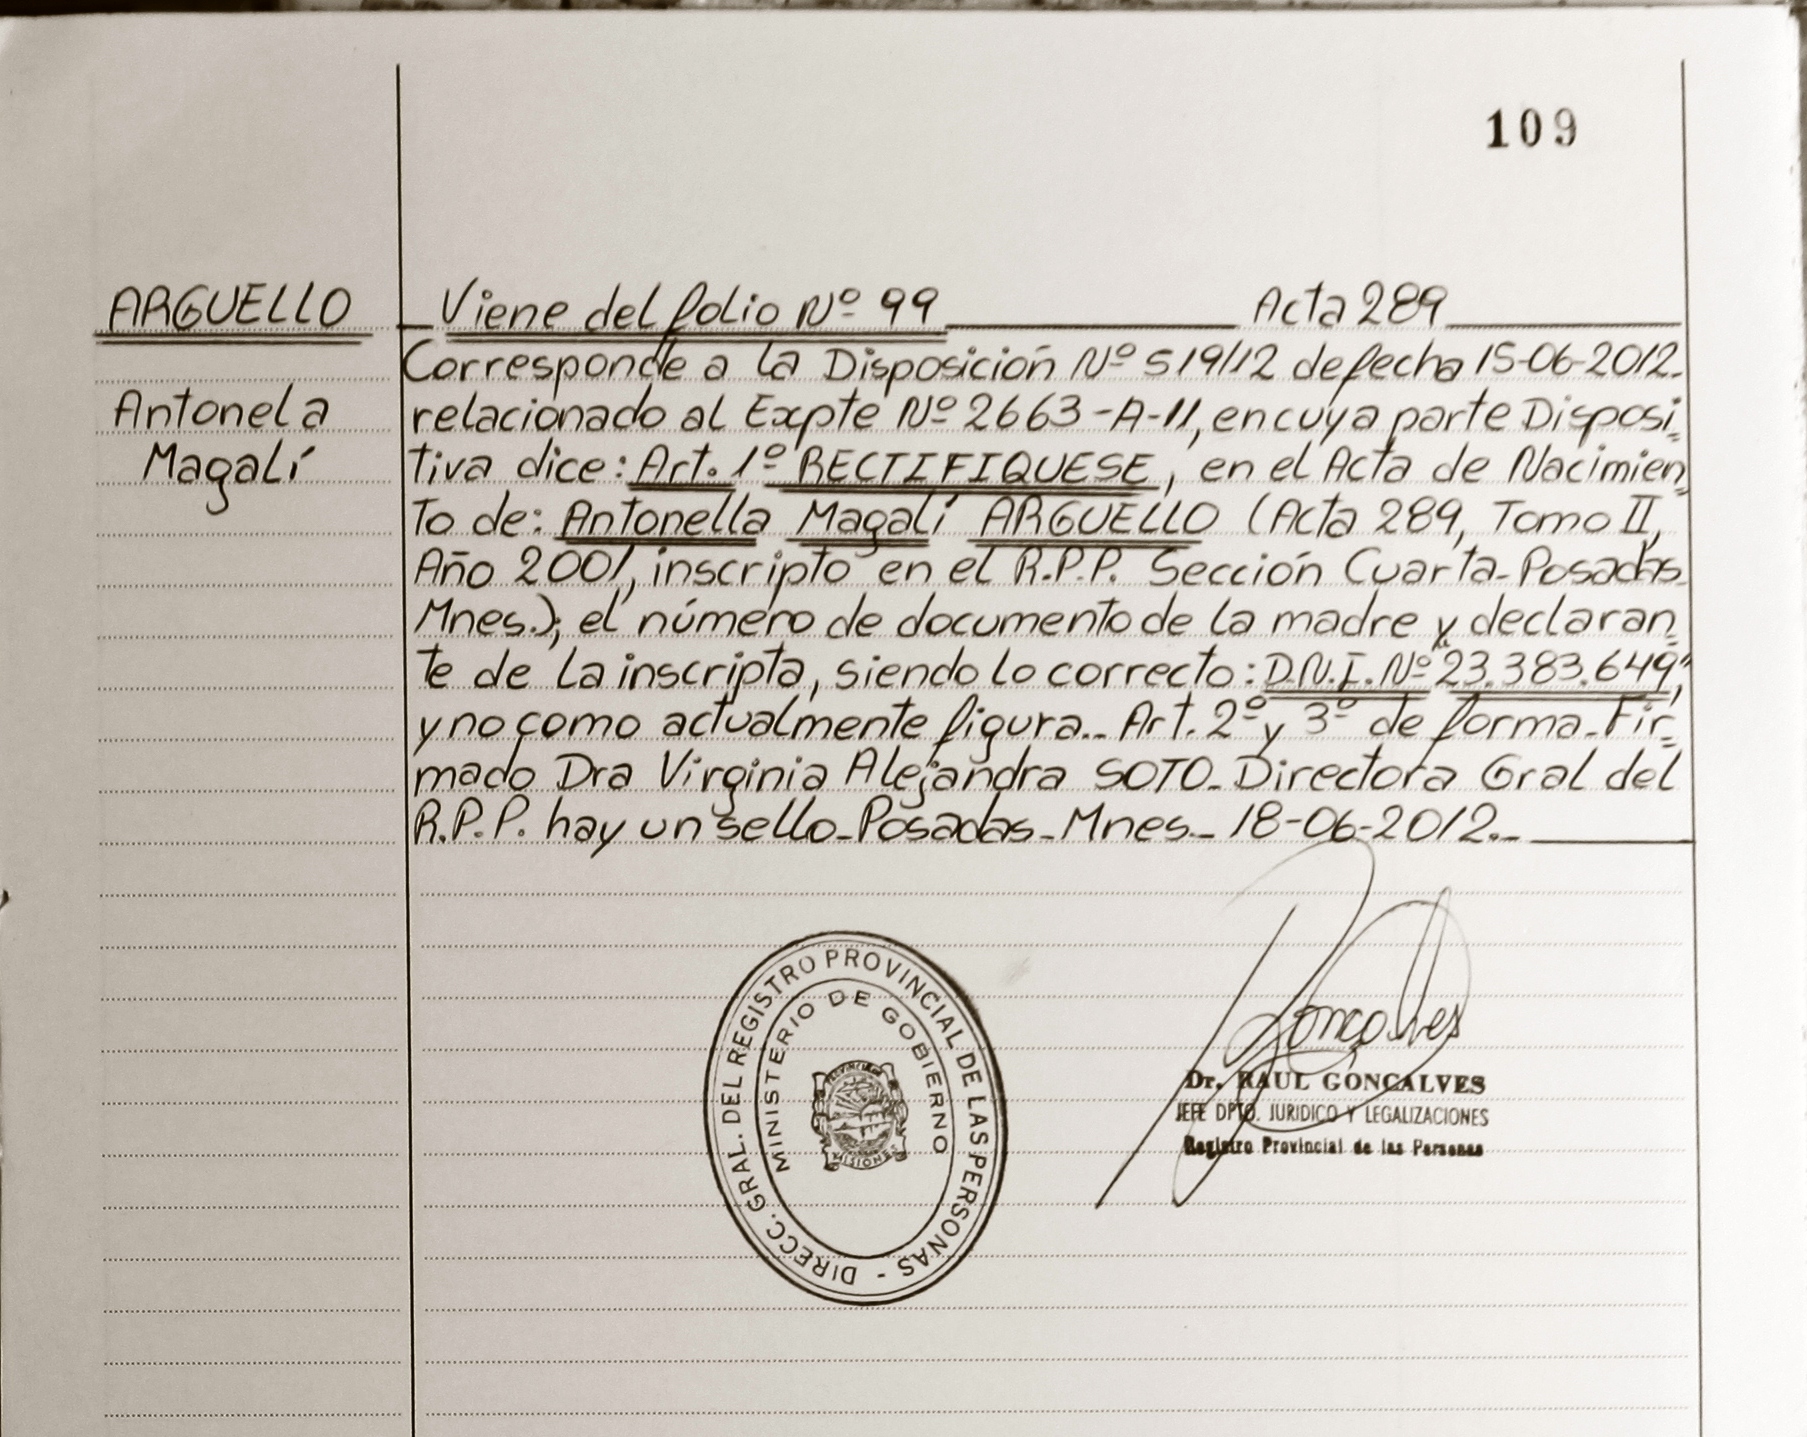 109
ARGUELLO
Antonela
Magalí
Viene del folio Nº 99 Acta 289
Corresponde a la Disposición Nº 519/12 de fecha 15-06-2012.
relacionado al Expte Nº 2663-A-11, en cuya parte Disposi=
tiva dice: Art. 1º RECTIFIQUESE, en el Acta de Nacimien=
to de: Antonella Magalí ARGUELLO (Acta 289, Tomo II,
Año 2001, inscripto en el R.P.P. Sección Cuarta-Posadas-
Mnes.); el número de documento de la madre y declaran=
te de la inscripta, siendo lo correcto: D.N.I. Nº "23.383.649",
y no como actualmente figura.- Art. 2º y 3º de forma-Fir=
mado Dra Virginia Alejandra SOTO-Directora Gral del
R.P.P. hay un sello-Posadas-Mnes.- 18-06-2012.-
DIRECC. GRAL. DEL REGISTRO PROVINCIAL DE LAS PERSONAS -
MINISTERIO DE GOBIERNO
PROVINCIA DE
MISIONES
Gonçalves
Dr. RAUL GONÇALVES
JEFE DPTO. JURIDICO Y LEGALIZACIONES
Registro Provincial de las Personas